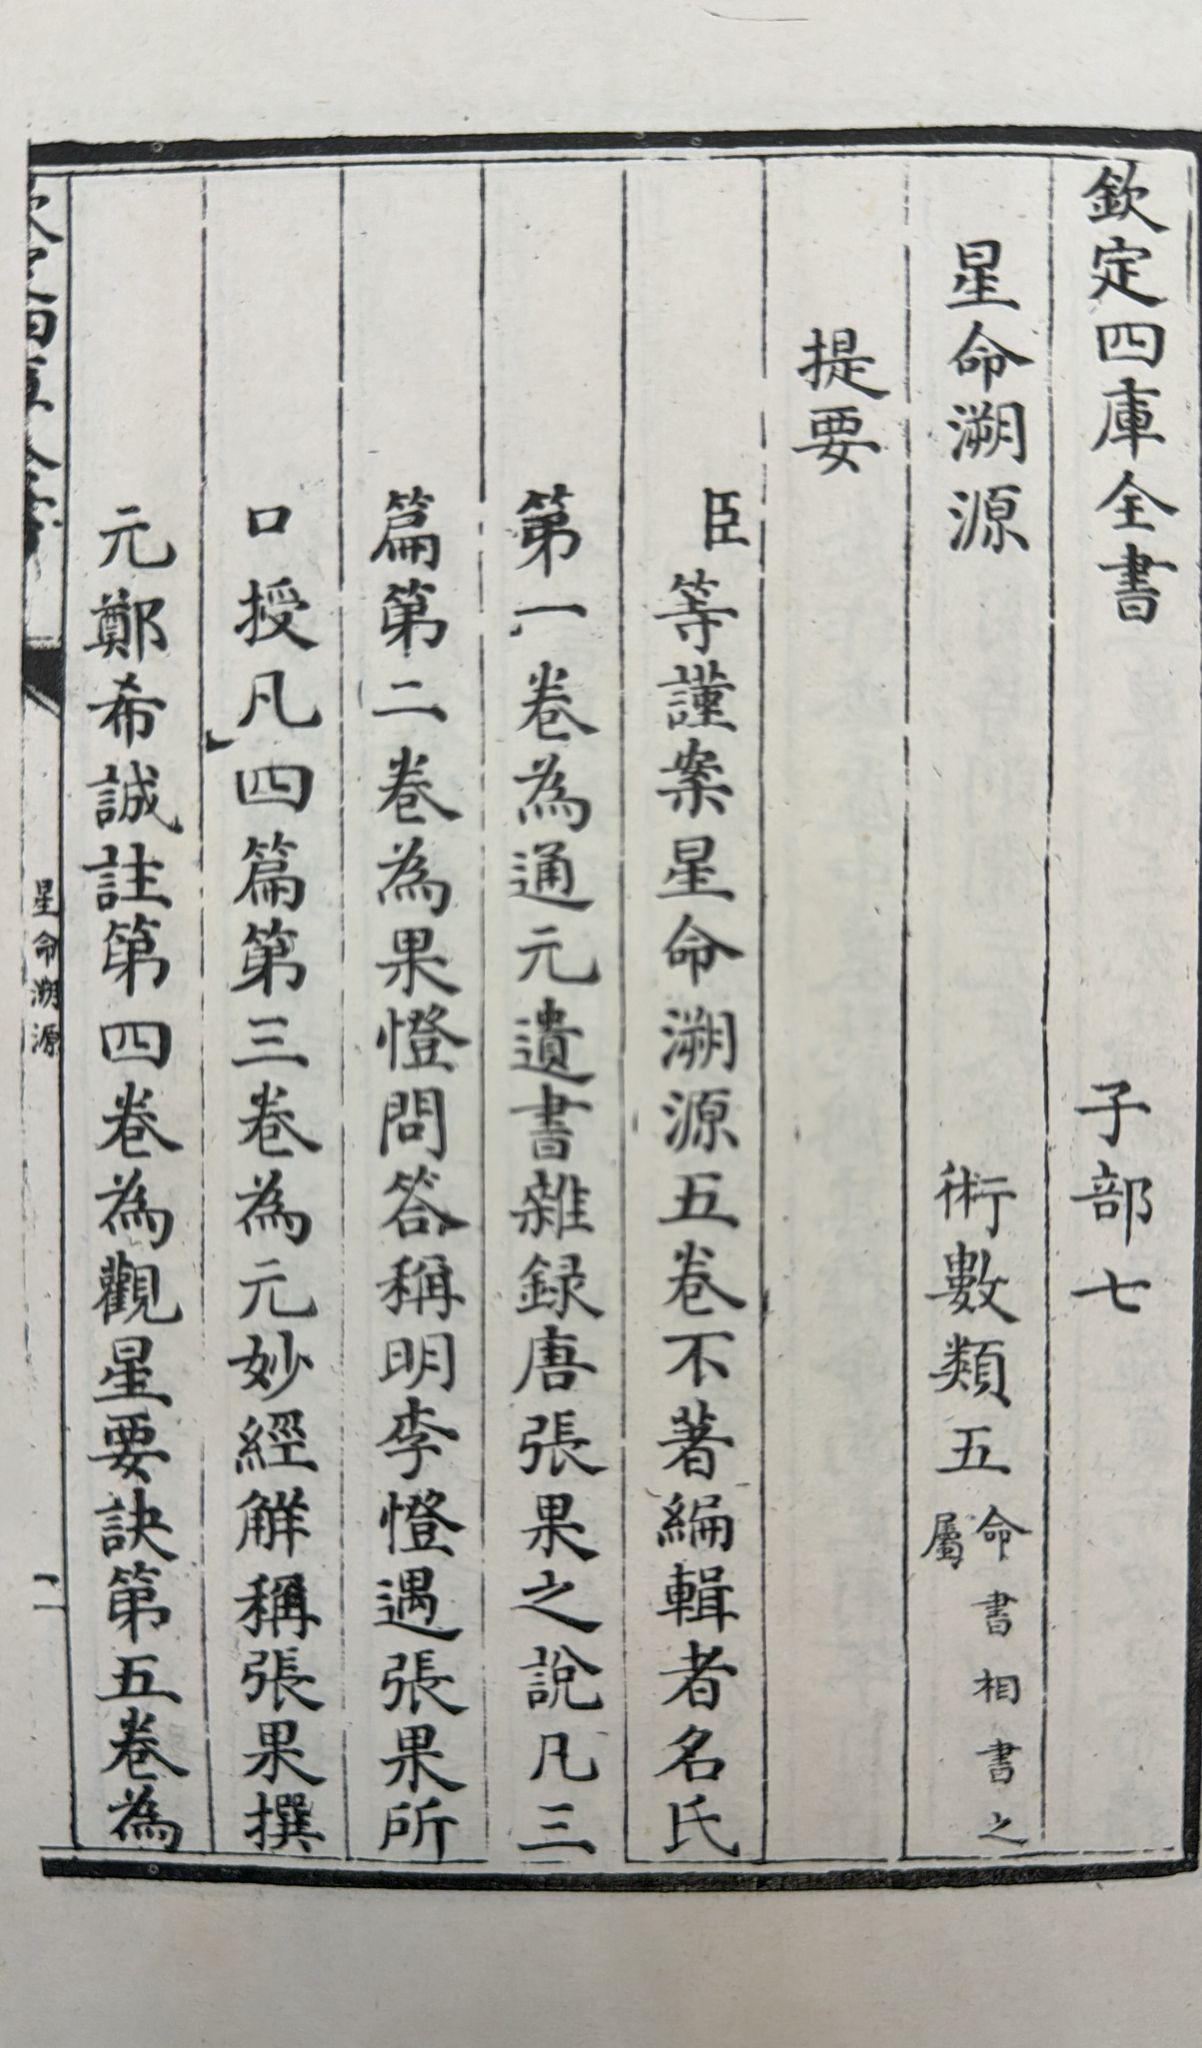 欽定四庫全書　子部七
星命溯源　術數類五命書相書之屬
提要
臣等謹案星命溯源五卷不著編輯者名氏
第一卷為通元遺書雜録唐張果之說凡三
篇第二卷為果憕問答稱明李憕遇張果所
口授凡四篇第三卷為元妙經解稱張果撰
元鄭希誠註第四卷為觀星要訣第五卷為
星命溯源